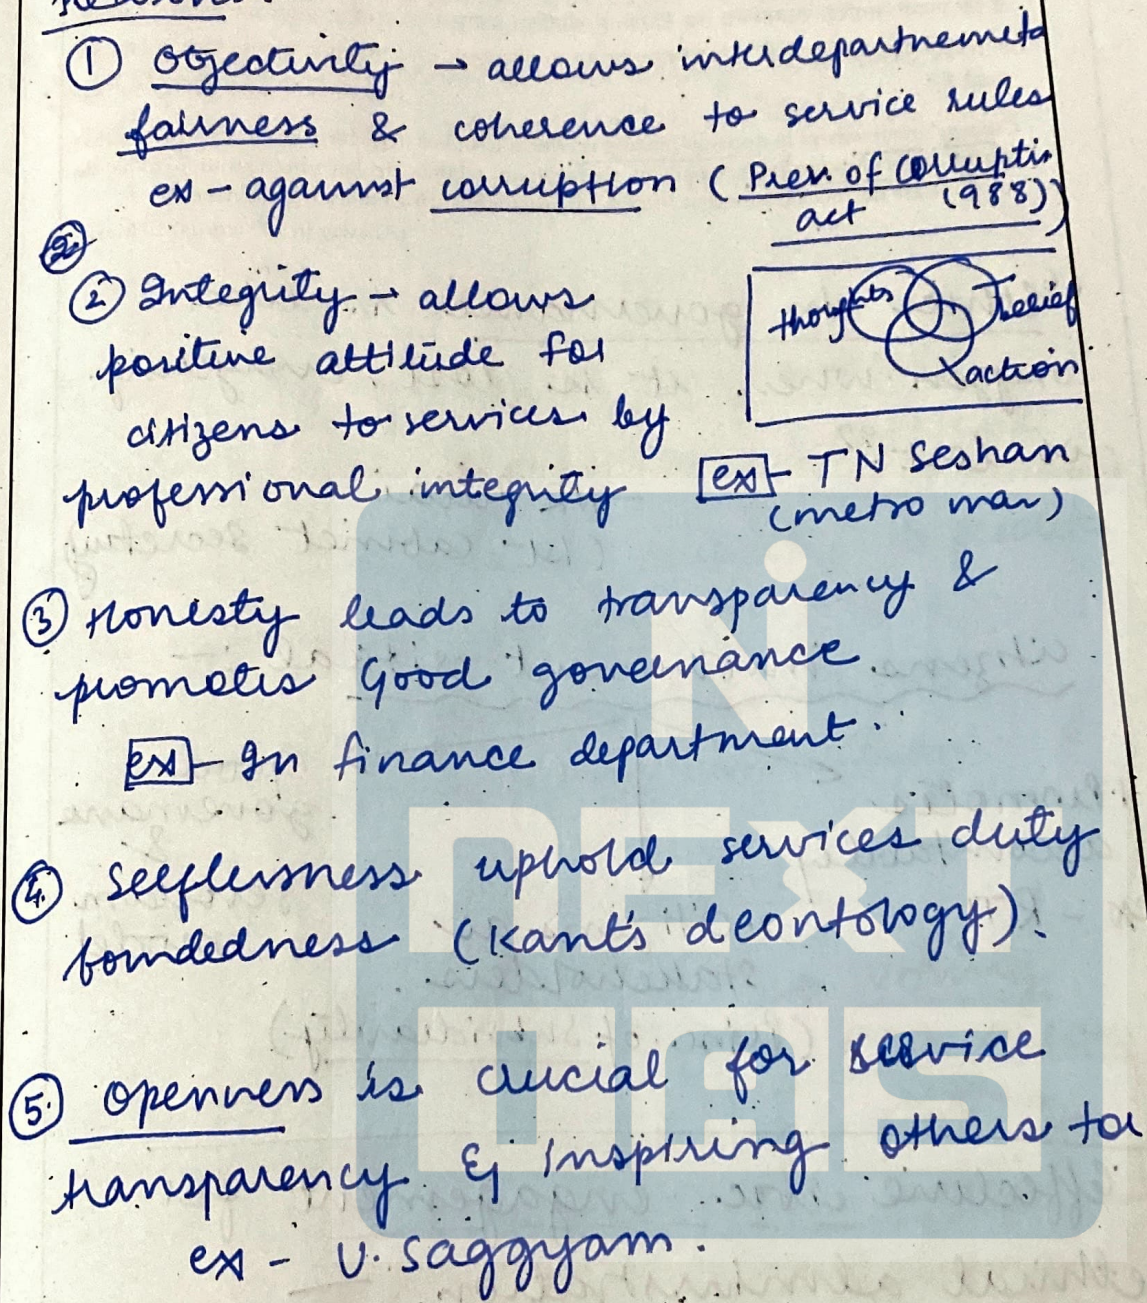 ① Objectivity → allows interdepartmemeta
fairness & coherence to service rules
ex - against corruption (Prev. of Corruptin
act (1988))
② Integrity → allows
positive attitude for
citizens to services by
professional integrity
thoughts
belief
action
ex - TN Seshan
(metro man)
③ Honesty leads to transparency &
promotes Good governance
ex - In finance department.
④ Selflessness uphold services duty
boundedness (Kant's deontology).
⑤ Openness is crucial for service
transparency & inspiring others to
ex - U. Saggyam.
NEXT
IAS